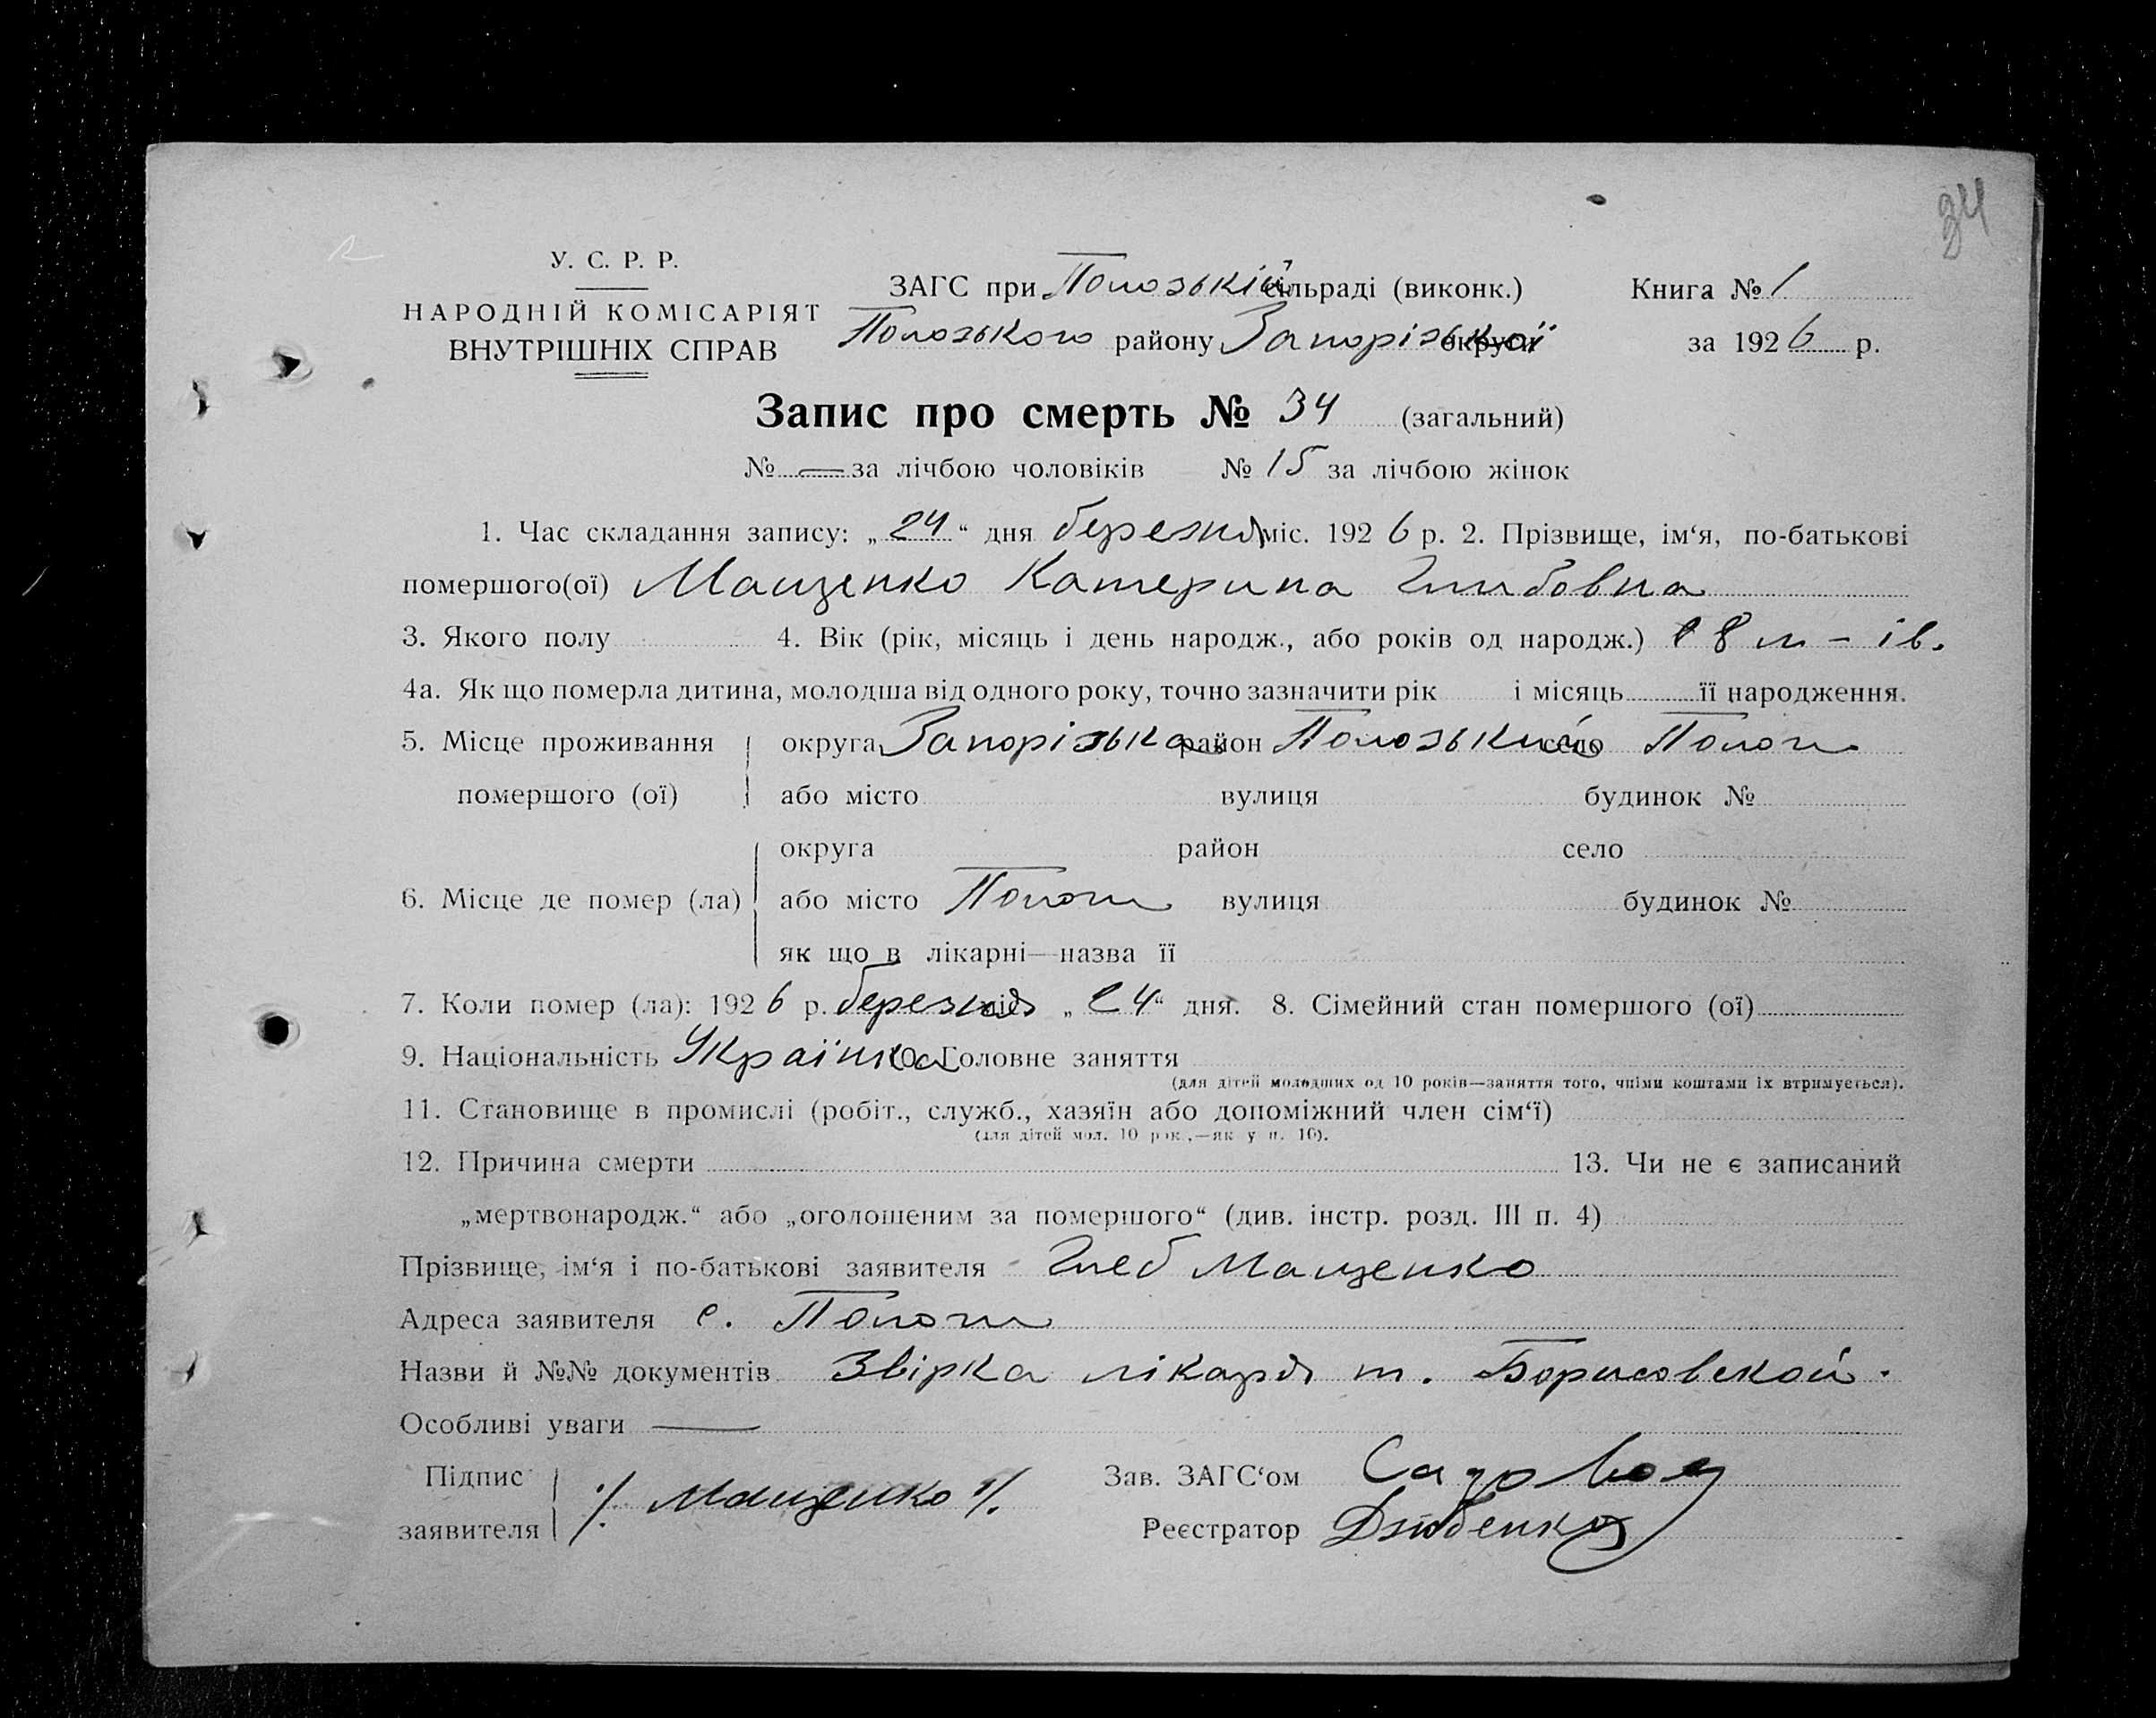 34
У. С. Р. Р.
НАРОДНІЙ КОМІСАРІЯТ
ВНУТРІШНІХ СПРАВ
ЗАГС при Пологській сільраді (виконк.)
Пологського району Запорізької округи
Книга № 1
за 1926 р.
Запис про смерть № 34 (загальний)
№ — за лічбою чоловіків № 15 за лічбою жінок
1. Час складання запису: „24“ дня березня міс. 1926 р. 2. Прізвище, ім‘я, по-батькові
помершого(ої) Мащенко Катерина Глибовна
3. Якого полу 4. Вік (рік, місяць і день народж., або років од народж.) 8 м-ів.
4а. Як що померла дитина, молодша від одного року, точно зазначити рік і місяць її народження.
5. Місце проживання помершого (ої) округа Запорізька район Пологський село Пологи
або місто вулиця будинок №
округа район село
6. Місце де помер (ла) або місто Пологи вулиця будинок №
як що в лікарні—назва її
7. Коли помер (ла): 1926 р. березня міс. „24“ дня. 8. Сімейний стан помершого (ої)
9. Національність Українка 10. Головне заняття
(для дітей молодших од 10 років—заняття того, чиїми коштами їх втримується).
11. Становище в промислі (робіт., служб., хазяїн або допоміжний член сім‘ї)
(для дітей мол. 10 рок.,—як у п. 10).
12. Причина смерти 13. Чи не є записаний
„мертвонародж.“ або „оголошеним за помершого“ (див. інстр. розд. III п. 4)
Прізвище, ім‘я і по-батькові заявителя Глеб Мащенко
Адреса заявителя с. Пологи
Назви й №№ документів Звірка лікаря т. Борисовской.
Особливі уваги —
Підпис заявителя /. Мащенко /.
Зав. ЗАГС‘ом
Реєстратор